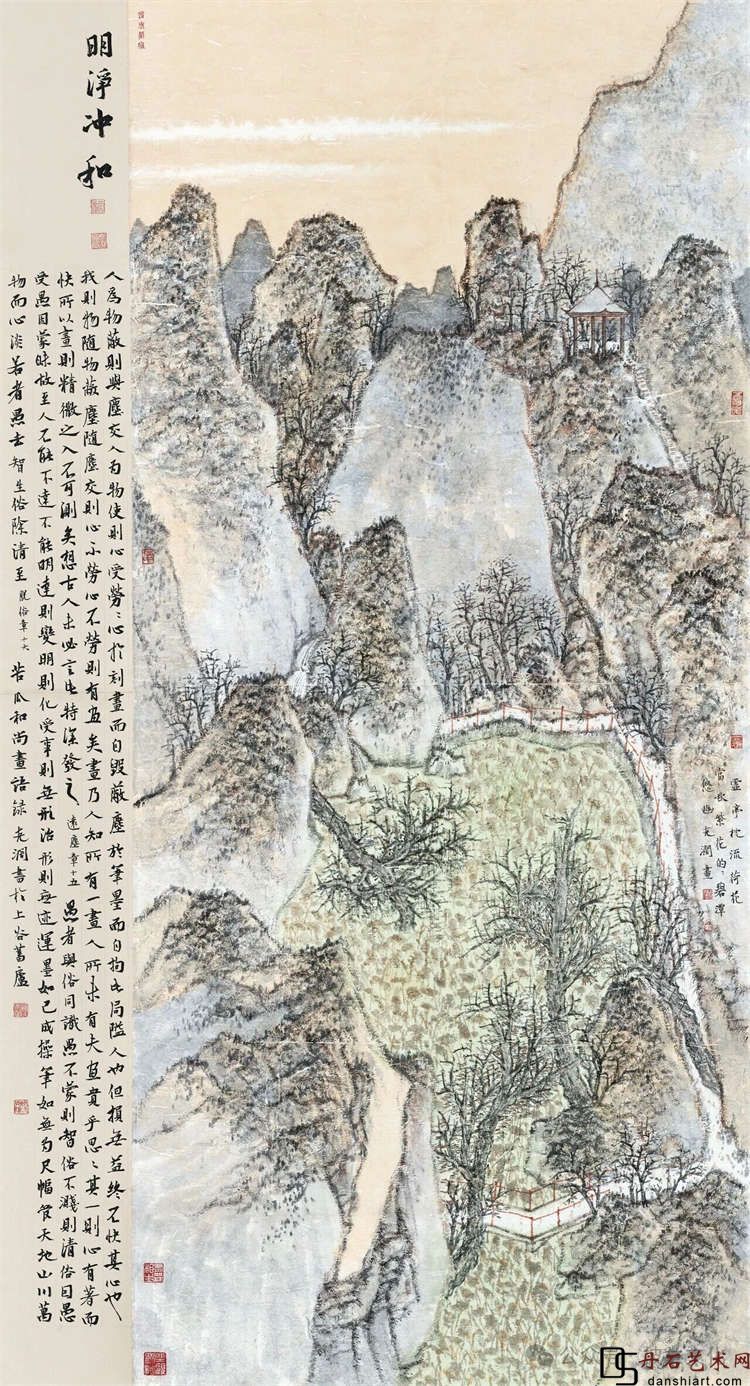 明淨冲和
人爲物蔽則與塵交人爲物使則心受勞〻心於刻畫而自毀蔽塵於筆墨而自拘此局隘人也但損無益終不快其心也
我則物隨物蔽塵隨塵交則心不勞心不勞則有畫矣畫乃人知所有一畫人所未有夫畫貴乎思〻其一則心有著而
快所以畫則精微之入不可測矣想古人未必言此特深發之 遠塵章十五 愚者與俗同識愚不蒙則智俗不濺則清俗因愚
受愚因蒙昧故至人不能不達不能明達則變明則化受事則無形治形則無迹運墨如已成操筆如無爲尺幅管天地山川萬
物而心淡若者愚去智生俗除清至 脫俗章十六 苦瓜和尚畫語錄 書於上谷舊廬
靈亭枕流荷花
碧潭
畫
丹石艺术网
danshiart.com